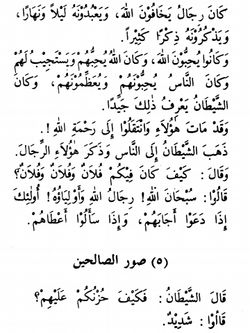 كَانَ رِجَالٌ يَخَافُونَ اللهَ، وَيَعْبُدُونَهُ لَيْلاً وَنَهَارًا،
وَيَذْكُرُونَهُ ذِكْرًا كَثِيرًا.
وَكَانُوا يُحِبُّونَ اللهَ، وَكَانَ اللهُ يُحِبُّهُمْ وَيَسْتَجِيبُ لَهُمْ
وَكَانَ النَّاسُ يُحِبُّونَهُمْ وَيُعَظِّمُونَهُمْ، وَكَانَ
الشَّيْطَانُ يَعْرِفُ ذَلِكَ جَيِّدًا.
وَقَدْ مَاتَ هَؤُلَاءِ وَانْتَقَلُوا إِلَى رَحْمَةِ اللهِ!.
ذَهَبَ الشَّيْطَانُ إِلَى النَّاسِ وَذَكَرَ هَؤُلَاءِ الرِّجَالَ.
وَقَالَ: كَيْفَ كَانَ فِيكُمْ فُلَانٌ وَفُلَانٌ وَفُلَانٌ؟
قَالُوا: سُبْحَانَ اللهِ! رِجَالُ اللهِ وَأَوْلِيَاؤُهُ! أُولَئِكَ
إِذَا دَعَوْا أَجَابَهُمْ، وَإِذَا سَأَلُوا أَعْطَاهُمْ.
(٥) صور الصالحين
قَالَ الشَّيْطَانُ: فَكَيْفَ حُزْنُكُمْ عَلَيْهِمْ؟
قَالُوا: شَدِيدٌ.